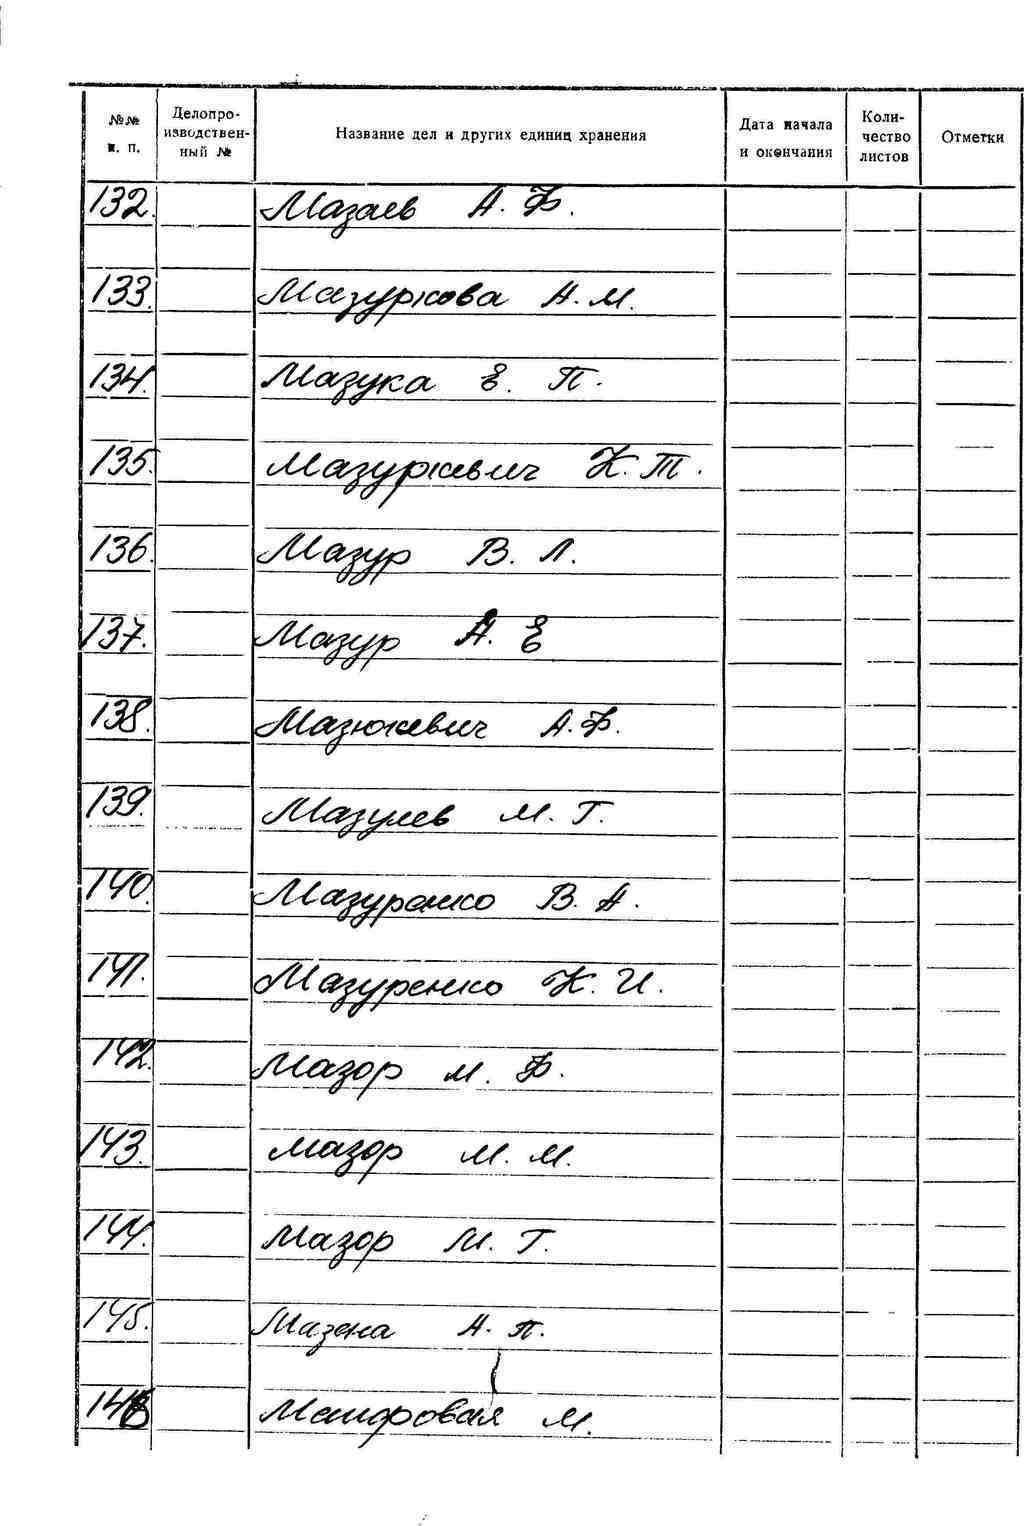 №№ п. п. Делопроизводственный № Название дел и других единиц хранения Дата начала и окончания Количество листов Отметки
132. Мазаев А. Ф.
133. Мазуркова А. М.
134. Мазука Е. П.
135. Мазуркевич К. Т.
136. Мазур В. Л.
137. Мазур А. Е
138. Мазюкевич А. Ф.
139. Мазулев М. Г.
140. Мазуренко В. А.
141. Мазуренко К. И.
142. Мазор М. Ф.
143. Мазор М. М.
144. Мазор М. Г.
145. Мазена А. П.
146 М.